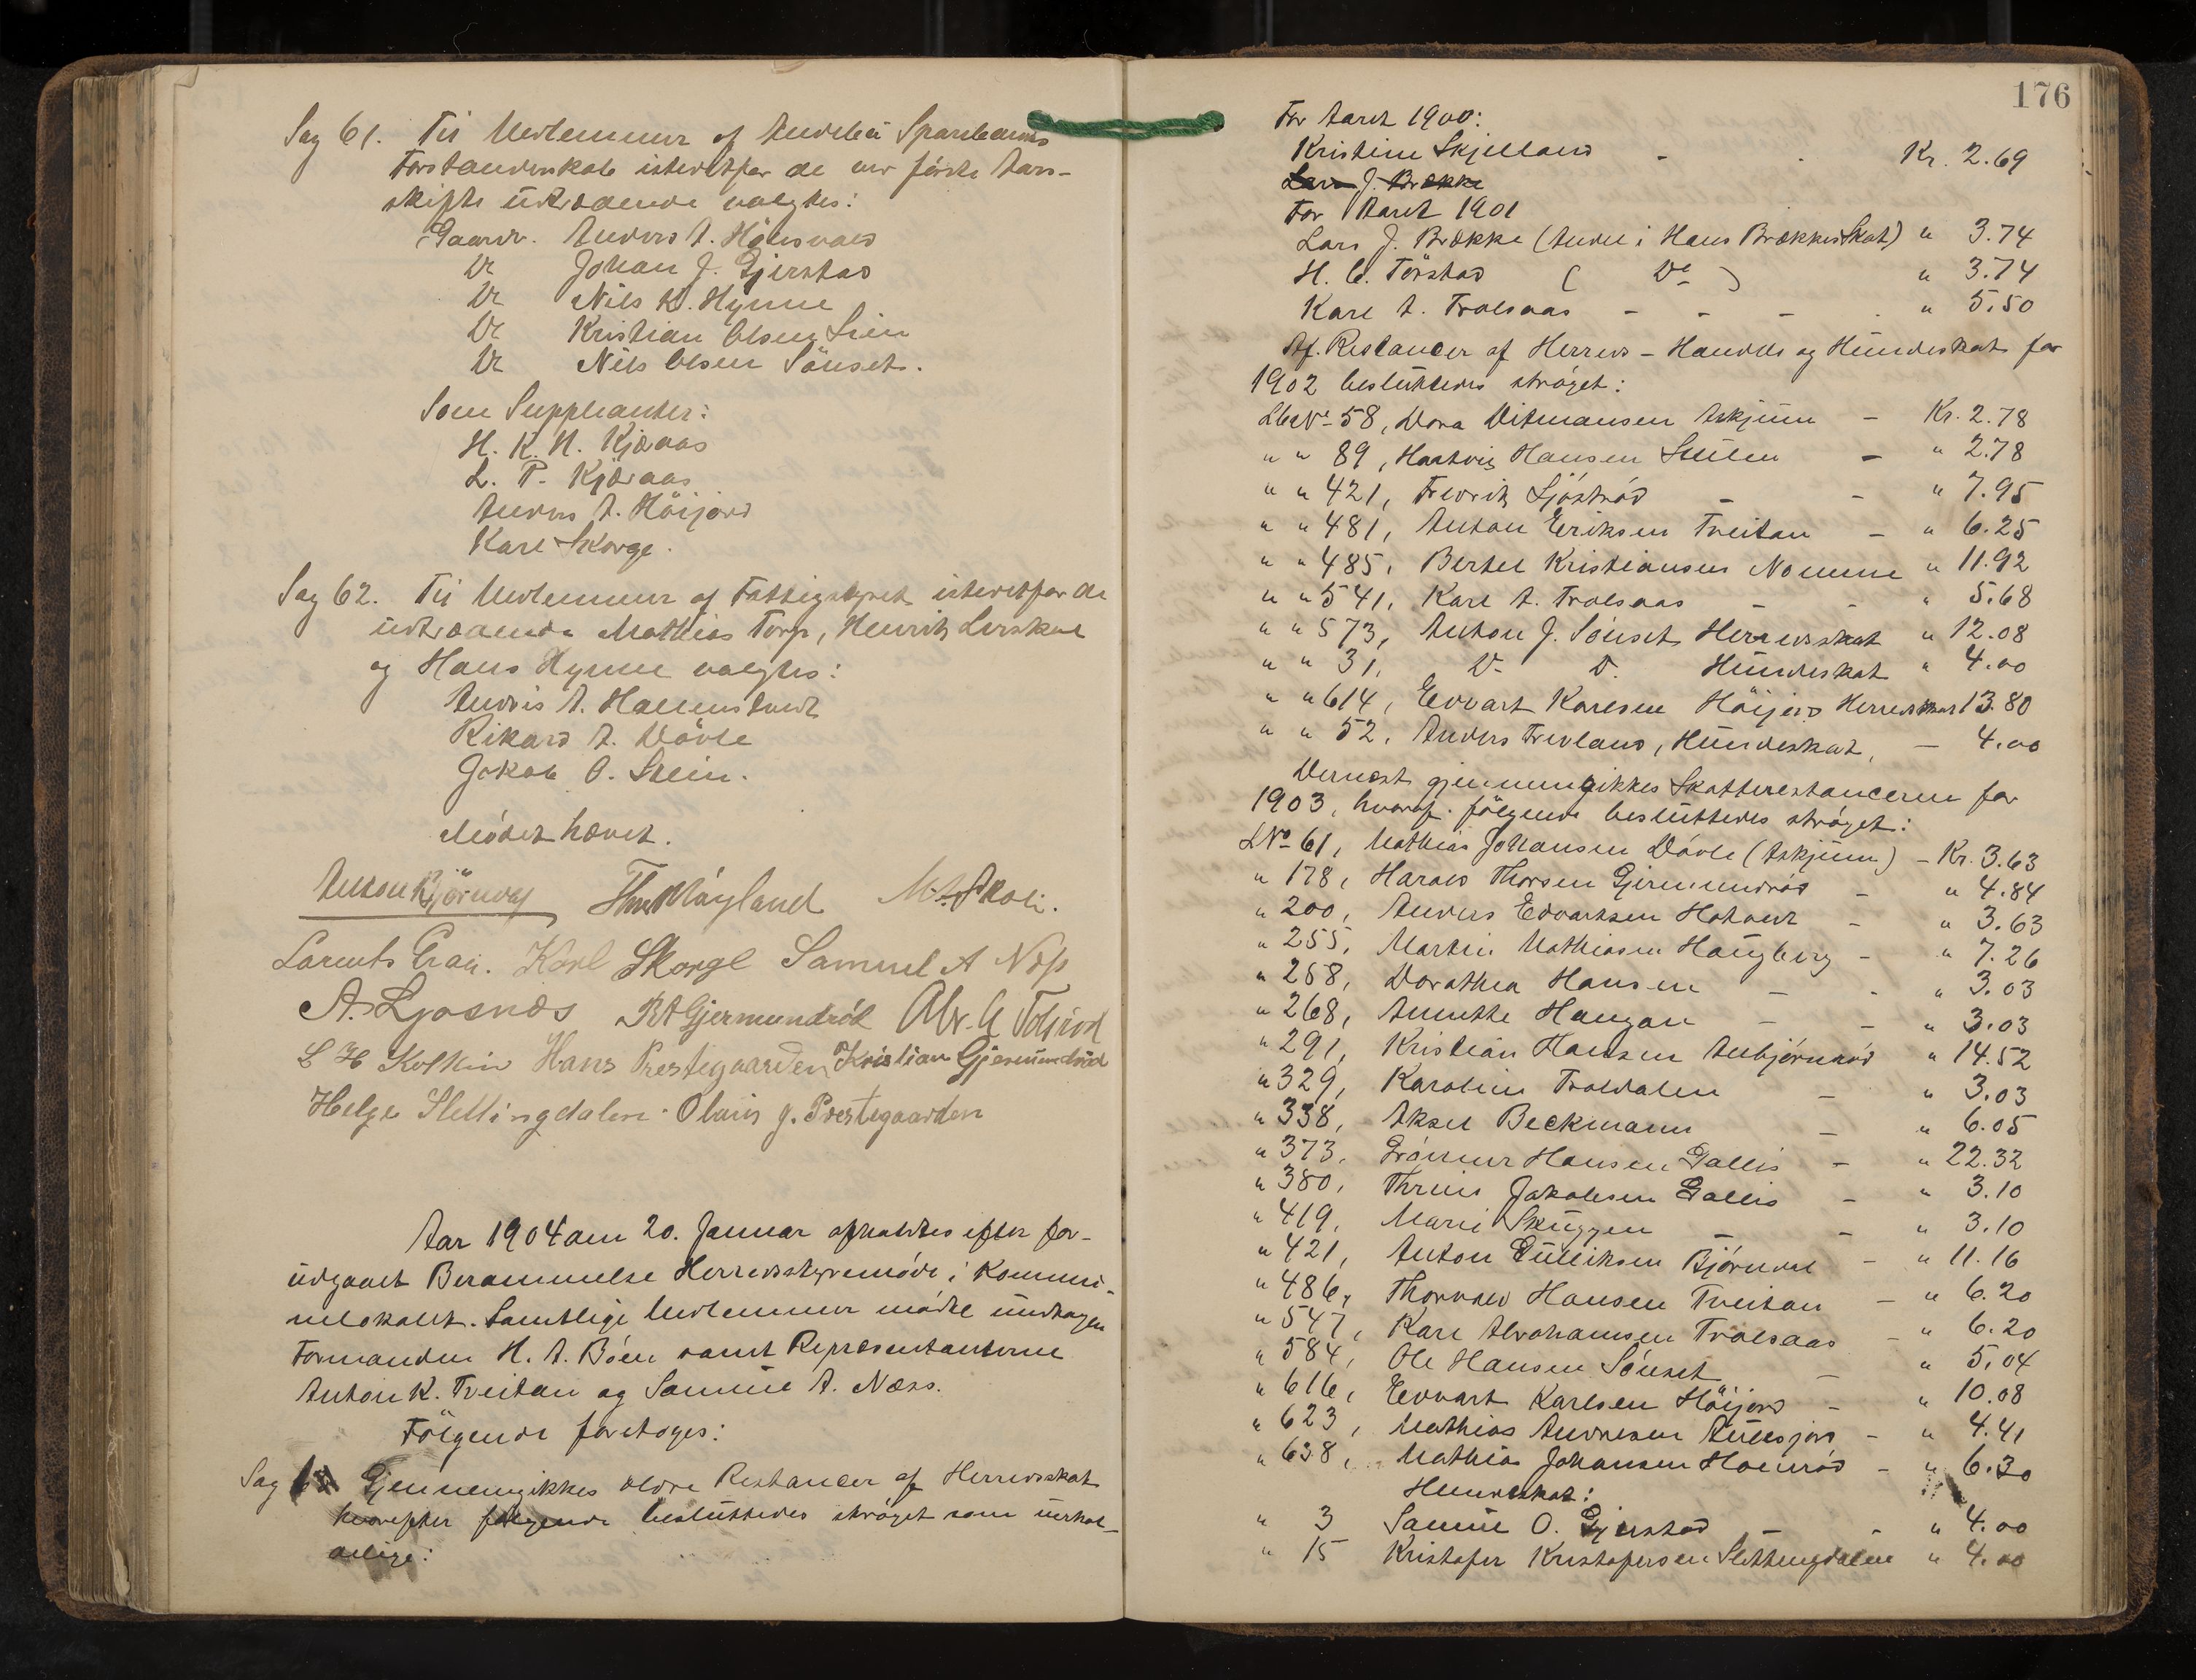 Sag 61. Til Medlemmer af Andebu Sparebanks
Forstanderskab istedetfor de ved første Aars-
skifte udtrædende valgtes:
Gaardr. Anders A. Hønsvald
Do Johan J. Gjerstad
Do Nils K. Hynne
Do Kristian Olsen Lien
Do Nils Olsen Sönset.
Som Suppleanter:
H. K. N. Kjæraas
L. P. Kjæraas
Anders A. Höijord
Karl Skorge.
Sag 62. Til Medlemmer af Fattigstyret istedetfor de
udtrædende Mathias Torp, Henrik Lerskal
og Hans Hynne valgtes:
Anders A. Hallenstvedt
Rikard A. Døvle
Jakob O. Stein.
Mödet hævet.
Anton Bjørndal Thv. Møyland M. A. Skoli.
Laurits Grau. Karl Skorge Samuel A Næss
A. Ljosnæs R A Gjermundröd Abr. A Tolsrød
L H Kolkin Hans Prestegaarden Kristian Gjermundrød
Helge Slettingdalen. Olaus J. Prestegaarden
Aar 1904 den 20. Januar afholdtes efter for-
udgaaet Berammelse Herredsstyremøde i Kommu-
nelokalet. Samtlige Medlemmer mødte undtagen
Formanden H. A. Bøen samt Repræsentanterne
Anton K. Treitan og Samuel A. Næss.
Følgende foretoges:
Sag Gjennemgikkes ældre Restancer af Herredsskat
hvorefter følgende besluttedes strøget som uerhol-
delige:
176
For Aaret 1900:
Kristine Skjelland - - Kr. 2.69
Lars J. Brække
For Aaret 1901
Lars J. Brække (Andel i Hans Brækkes Skat) " 3.74
H. C. Törstad ( Do ) " 3.74
Karl A. Trolsaas - - - - " 5.50
Af Restancer af Herreds- Handels og Hundeskat for
1902 besluttedes strøget:
LbeNo 58, Dora Ditmansen Askjum - Kr. 2.78
" " 89, Hartvig Hansen Stulen - " 2.78
" " 421, Fredrik Sjøstrød - - " 7.95
" " 481, Anton Eriksen Treitan - " 6.25
" " 485, Bertel Kristiansen Nomme " 11.92
" " 541, Karl A. Trolsaas - - " 5.68
" " 573, Anton J. Sönset Herredsskat " 12.08
" " 31, D. D. Hundeskat " 4.00
" " 614, Edvart Karlsen Höijord Herredsskat 13.80
" " 52, Anders Trevland, Hundeskat, - 4.00
Dernæst gjennemgikkes Skatterestancerne for
1903, hvoraf følgende besluttedes strøget:
LNo 61, Mathias Johansen Døvle (Askjum) - Kr. 3.63
" 178, Harald Thorsen Gjermundrød - " 4.84
" 200, Anders Edvartsen Hotvedt - " 3.63
" 255, Martin Mathiasen Haugberg - " 7.26
" 258, Dorathea Hansen - - " 3.03
" 268, Annette Haugan - - " 3.03
" 291, Kristian Hansen Anbjørnrød " 14.52
" 329, Karoline Troldalen - " 3.03
" 338, Aksel Beckmann - " 6.05
" 373, Grønner Hansen Gallis - " 22.32
" 380, Thrine Jakobsen Gallis - " 3.10
" 419, Marie Skuggen - - " 3.10
" 421, Anton Gulliksen Bjørndal - " 11.16
" 486, Thorvald Hansen Treitan - " 6.20
" 547, Karl Abrahamsen Trolsaas - " 6.20
" 584, Ole Hansen Sönset - " 5.04
" 616, Edvart Karlsen Höijord - " 10.08
" 623, Mathias Andresen Aulesjord - " 4.41
" 638, Mathias Johansen Holmrød - " 6.30
Hundeskat:
" 3 Samuel O. Gjerstad - - " 4.00
" 15 Kristofer Kristofersen Slettingdalen " 4.00